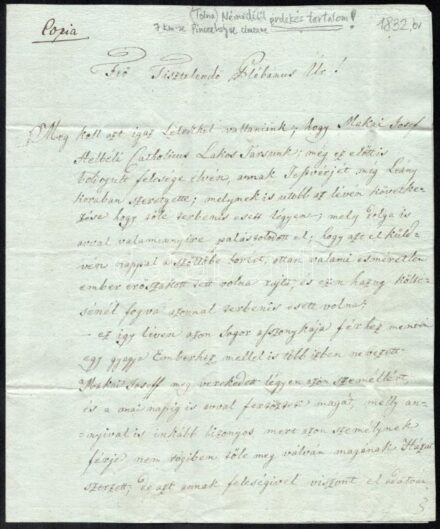 (Tolna) Némediből érdekes tartalom!
7 km-re Pincehelyre címezve
1832,01
Copia
Fő Tisztelendő Plébánus Úr!
Meg kell azt igaz Lélekkel vallanunk; hogy Makai Josef
Helbéli Catholicus Lakos Társunk; még ez előtt is
felesége élvén, annak Testvérjét még Leány
korában szeretgette; melynek is utóbb az lévén követke-
zése hogy tőle terhenis esett légyen; mely dolge is
avval valamenyire palástolódott el; hogy azt el külö-
vén nappal a szőllőbe, ottan valami esmeretlen
ember erőszakot tett volna rajta; és ezen hazug költe-
ménél fogva azonnal terhenis esett volna;
- ez így lévén azon Sógor aszonykája férhez menvén
egy Emberhez, mellel is több ízben nevezett
Makai Joseff meg verekedett légyen azon személlért,
és a mai napig is avval magát, melly an-
nyival is inkább bizonyos mert azon személynek
férje nem rőgiben tőle meg válván magának Házat
szerzett, de azt annak feleségivel viszont el